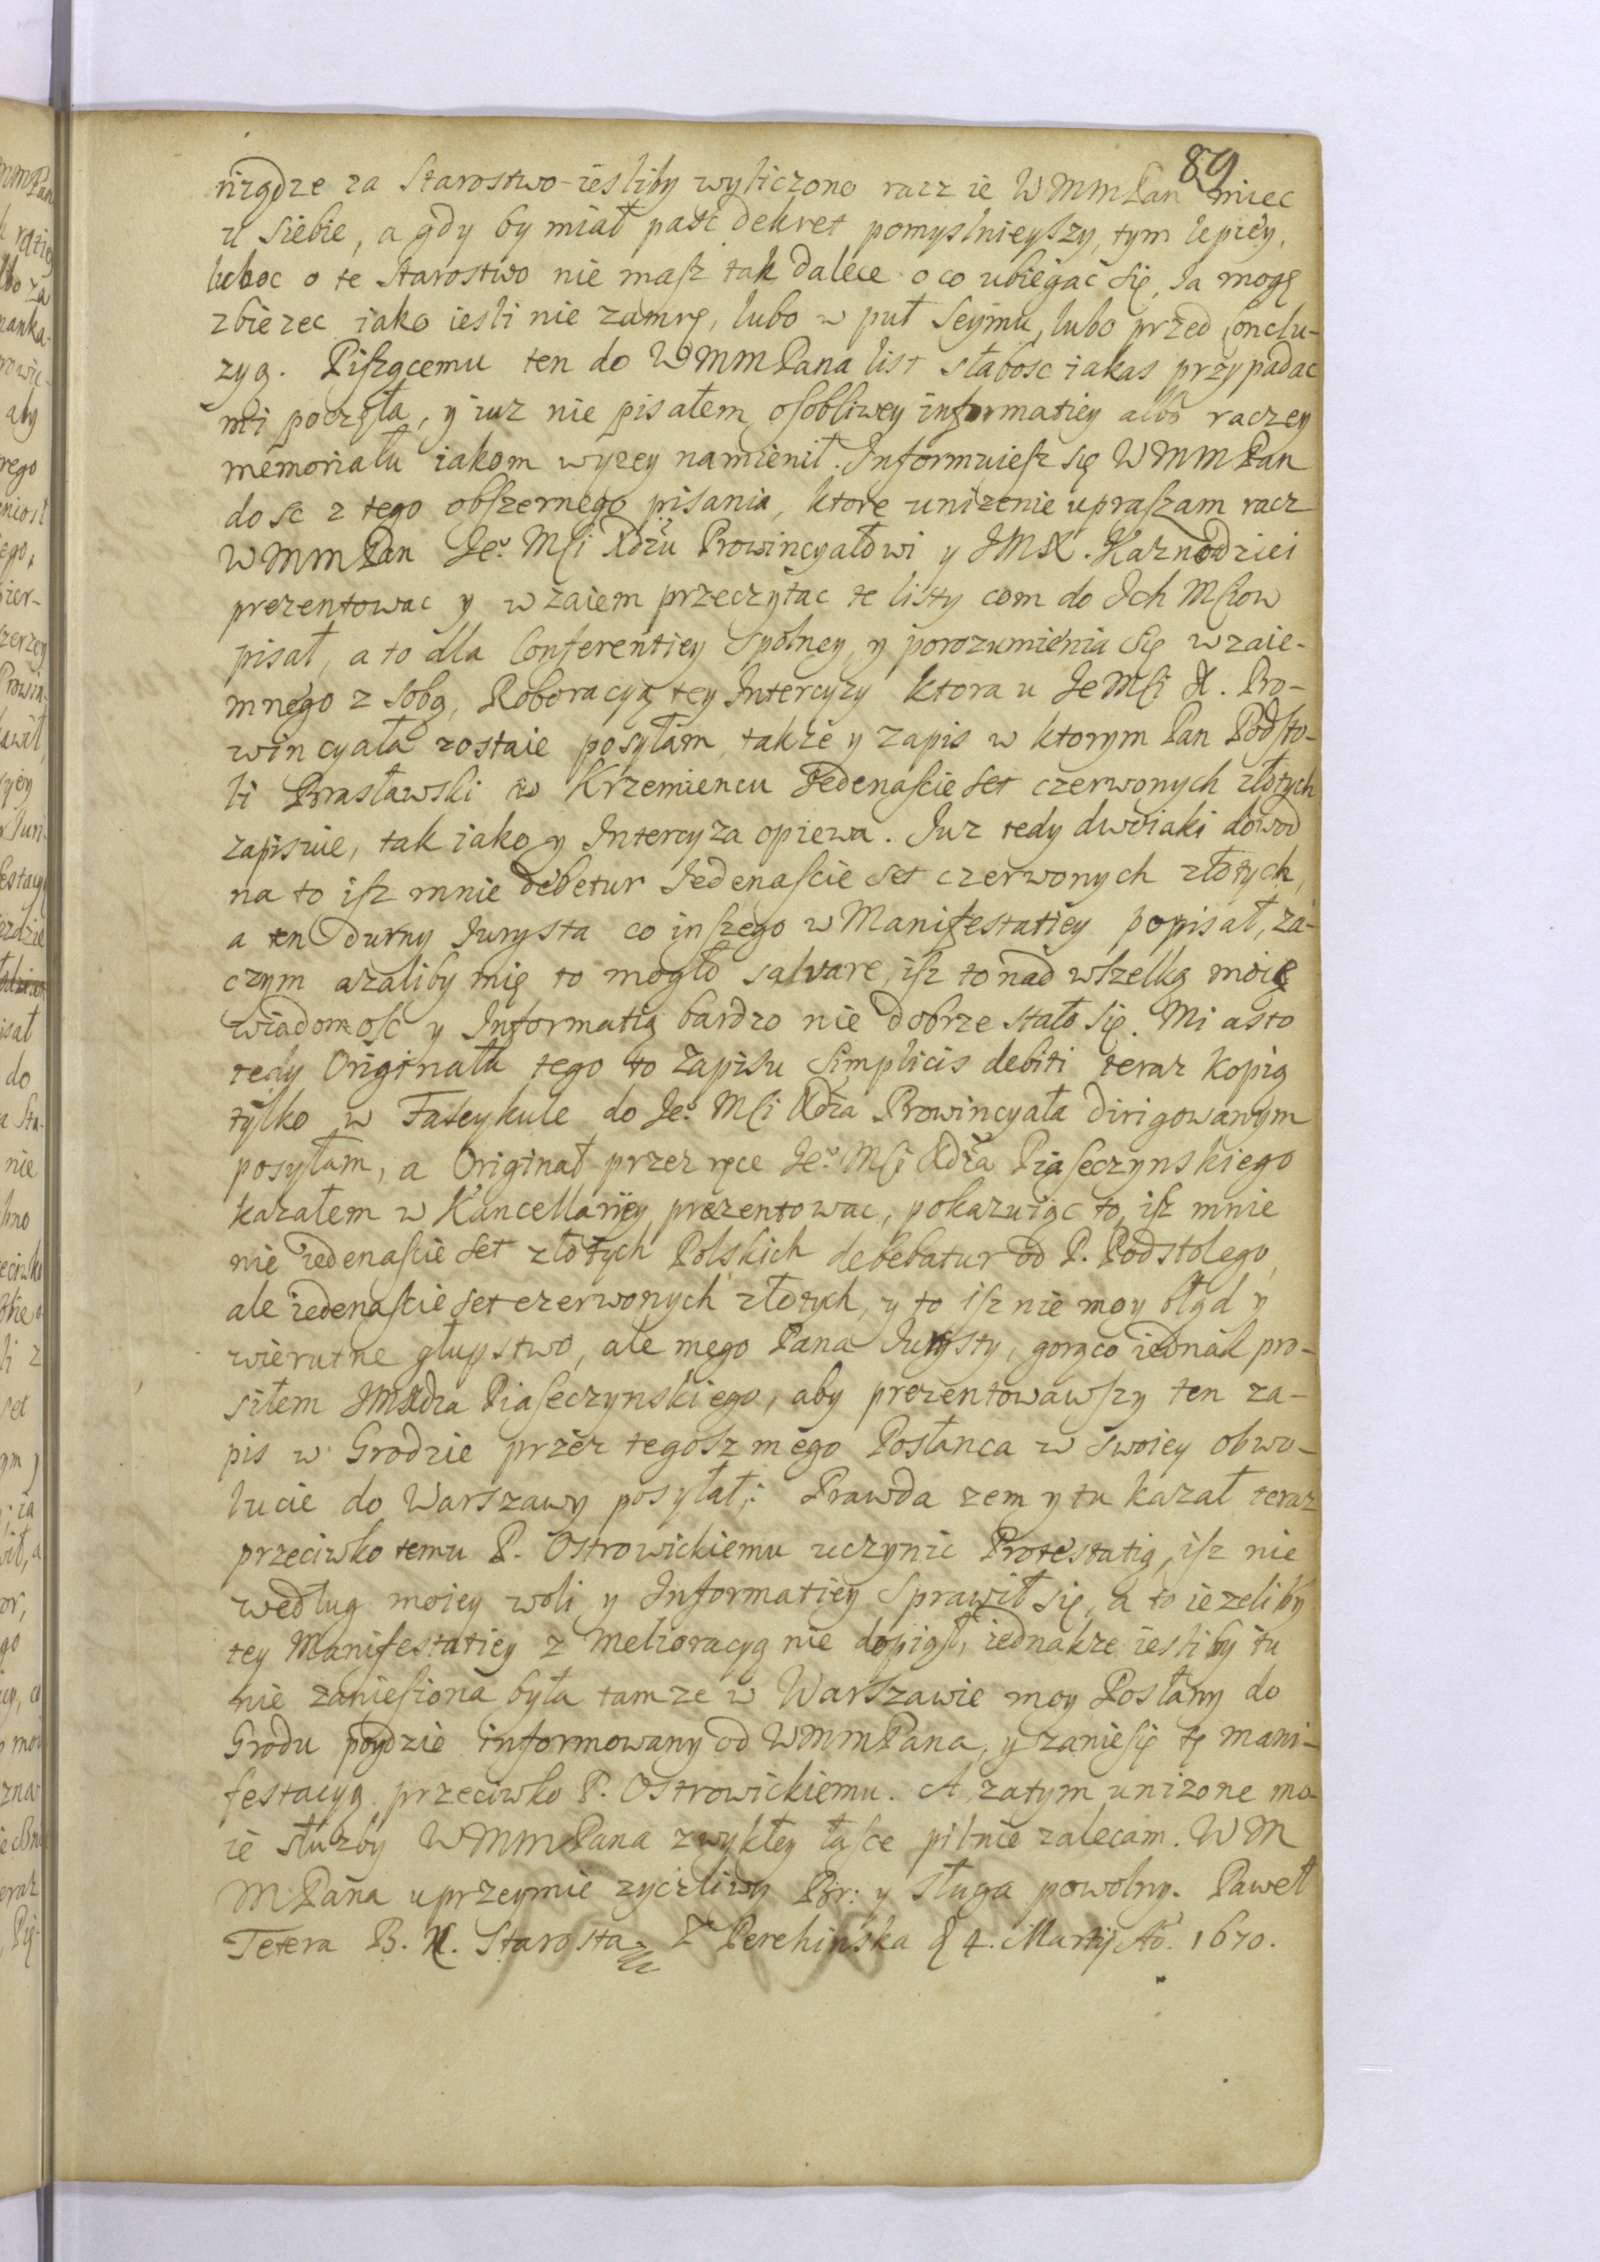 89
nizgdze za Starostwo iesliby wyliczono racz ie WMMPan miec
u siebie, a gdy by miał paśc dekret pomyslnieyszy, tym lepiey,
luboc o te Starostwo nie masz tak dalece o co ubiegać się, Ja mogę
zbiezec iako iesli nie zamrę, lubo w puł Seymu, lubo przed Conclu-
zyą. Piszącemu ten do WMMPana list słabosc iakas przypadac
mi poczęła, y iuz nie pisałem osobliwey informatiey albo raczey
memoriału iakom wyzey namienił. Informuiesz się WMMPan
dosc z tego obszernego pisania, ktore unizenie upraszam racz
WMMPan Jeo Mści Xdzu Prowincyałowi y JMX. Kaznodziei
prezentowac y wzaiem przeczytac te listy com do Ich Mściow
pisał, a to dla Conferentiey spolney, y porozumienia się wzaie-
mnego z sobą, Roboracyą tey Intercyzy ktora u JeMści X. Pro-
wincyała zostaie posyłam, także y zapis w ktorym Pan Podsto-
li Brasławski w Krzemiencu Jedenascie set czerwonych złotych
zapisuie, tak iako y Intercyza opiewa. Juz tedy dwoiaki dowod
na to isz mnie debetur Jedenascie set czerwonych złotych,
a ten durny Jurysta co inszego w Manifestatiey popisał, za-
czym azaliby mię to mogło salvare, isz to nad wszelką moię
wiadomosc y Informatią bardzo nie dobrze stało się. Miasto
tedy Originału tego to Zapisu Simplicis debiti teraz kopią
tylko w Fascykule do Jeo Mści Xdza Prowincyała dirigowanym
posyłam, a Originał przez ręce Jeo Mści Xdza Piaseczynskiego
kazałem w Kancellariey prezentowac, pokazuiąc to, isz mnie
nie iedenascie set złotych Polskich debebatur od P. Podstolego,
ale iedenascie set czerwonych złotych, y to isz nie moy błąd y
wierutne głupstwo, ale mego Pana Jurysty, gorąco iednak pro-
siłem JMXdza Piaseczynskiego, aby prezentowawszy ten za-
pis w Grodzie przez tegosz mego Posłanca w swoiey obwo-
lucie do Warszawy posyłał; Prawda zem y tu kazał teraz
przeciwko temu P. Ostrowickiemu uczynic Protestatią, isz nie
według moiey woli y Informatiey Sprawił się, a to iezeliby
tey Manifestatiey z Melioracyą nie dopiął, iednakze iesliby tu
nie zaniesiona była tamze w Warszawie moy Posłany do
Grodu poydzie informowany od WMMPana, y zaniesię tę mani-
festacyą przeciwko P. Ostrowickiemu. A zatym unizone mo-
ie słuzby WMMPana zwykłey łasce pilnie zalecam. WM
MPana uprzeymie zyczliwy Br: y sługa powolny. Paweł
Tetera B. N. Starosta Z Perehinska d 4. Martij Ao. 1670.